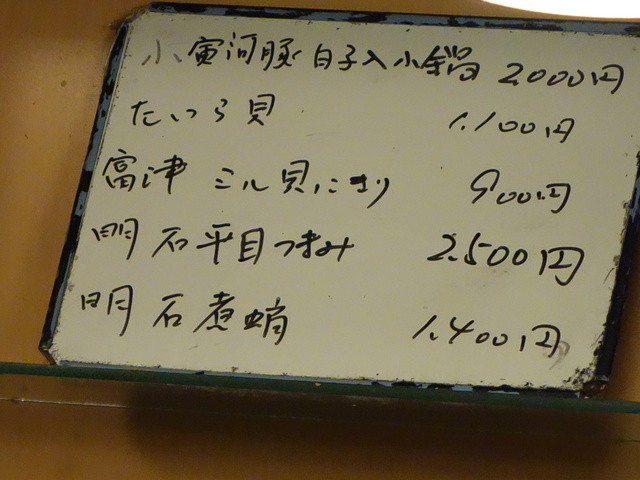 小寅河豚白子入小鍋 2000円
たいら貝 1.100円
富津 ミル貝にぎり 900円
明石平目つまみ 2.500円
明石煮蛸 1.400円